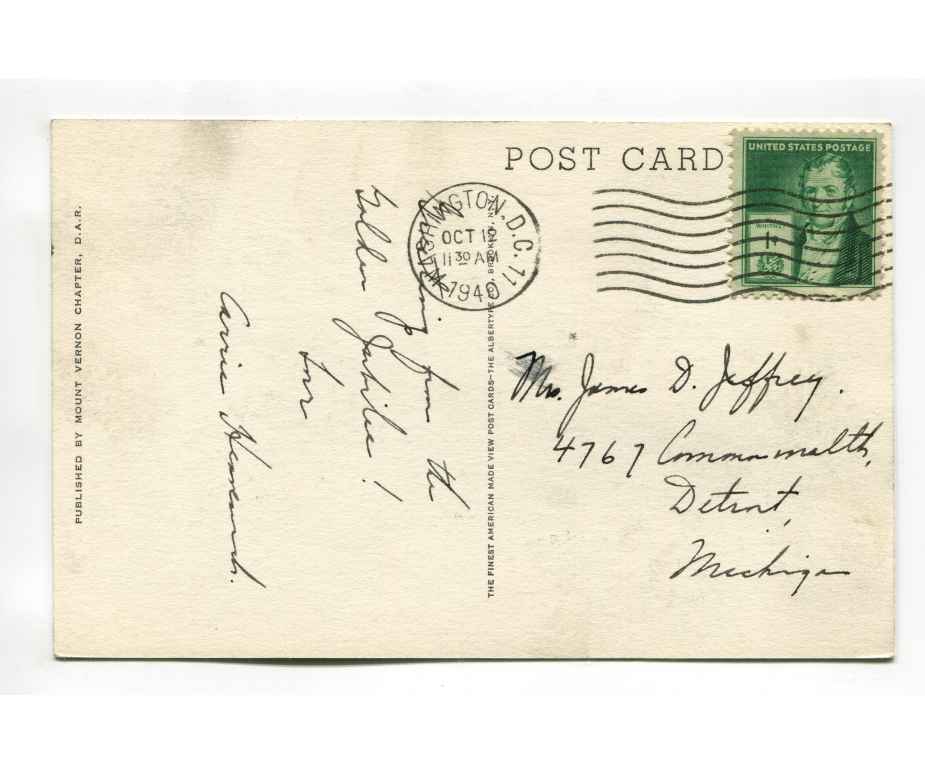 POST CARD
UNITED STATES POSTAGE
WHITNEY
1¢
WASHINGTON, D.C. 11
OCT 12
11 30 AM
1940
Greeting from the
Golden Jubilee!
Love
Carrie
Mrs. James D. Jeffrey.
4767 Commonwealth,
Detroit,
Michigan
PUBLISHED BY MOUNT VERNON CHAPTER, D.A.R.
THE FINEST AMERICAN MADE VIEW POST CARDS—THE ALBERTYPE CO., BROOKLYN, N.Y.